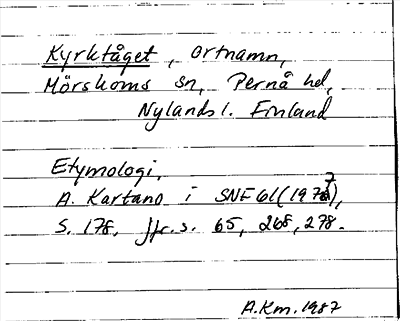 Kyrktåget, ortnamn,
Mörskoms sn, Pernå hd,
Nylands l. Finland
Etymologi.
A. Kartano i SNF 61 (1977),
S. 178, jfr. s. 65, 268, 278.
A.Km. 1987